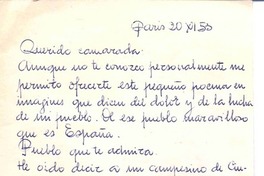 Paris 20 XI 53
Querido camarada:
Aunque no te conozco personalmente me
permito ofrecerte este pequeño poema en
imagenes que dicen del dolor y de la lucha
de un pueblo. De ese pueblo maravilloso
que es España.
Pueblo que te admira.
He oido decir a un campesino de Ciu-